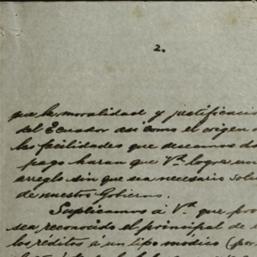 2.
que la moralidad y justificació
del Ecuador asi como el origen d
las facilidades que deseamos da
pago haran que Vd. logre un
arreglo sin que sea necesario soli
de nuestro Gobierno.
Suplicamos á Vd. que pro
sea reconocido el principal de
los réditos á un tipo módico (por